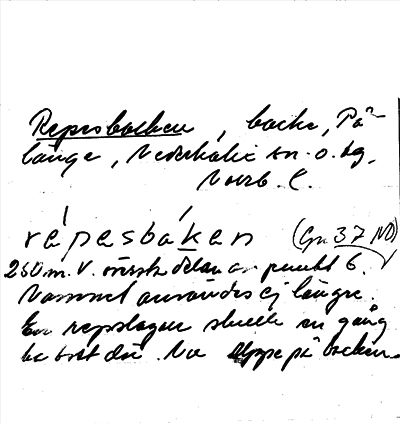 Repesbacken, backe, På-
länge, Nederkalix sn. o. tg,
Norrb. l.
répesbáken (Gn 37 NO)
250 m. V. delen av punkt 6.
Namnet användes ej längre.
En repslagare skulle en gång
ha bott där. uppe på backen.